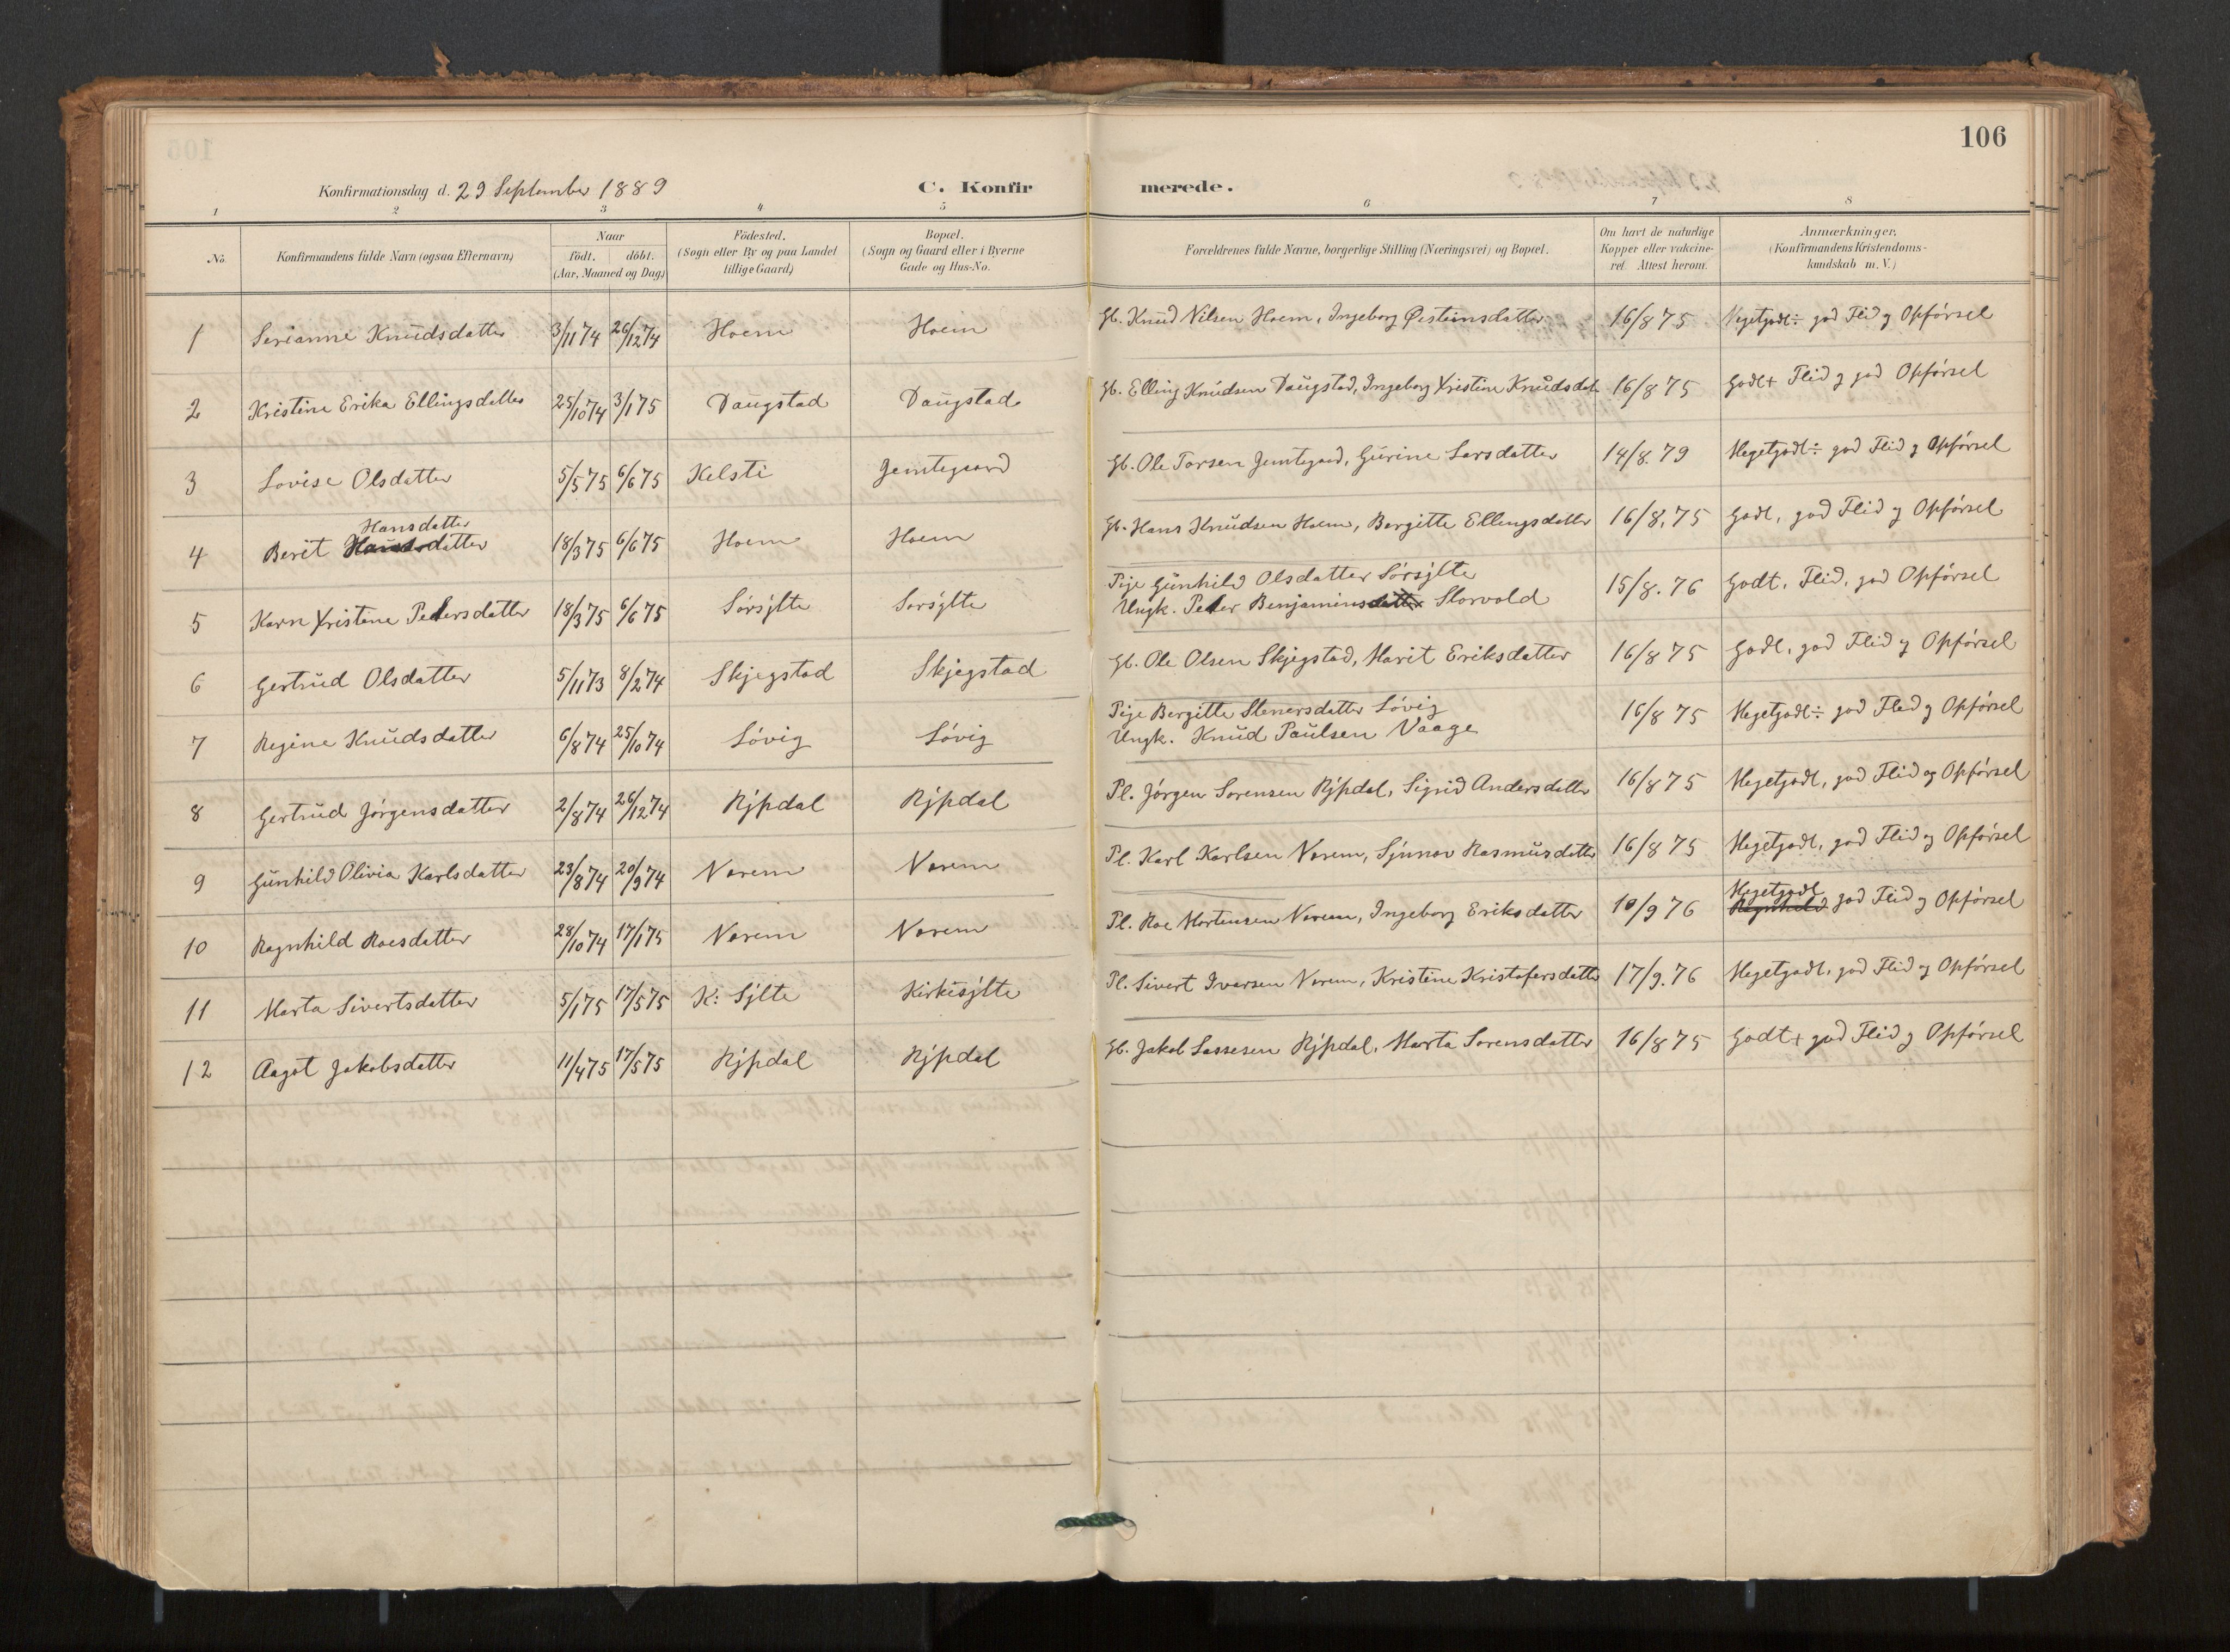 106
Konfirmationsdag d. 29 September 1889
C. Konfirmerede.
1 2 3 4 5 6 7 8
No.
Konfirmandens fulde Navn (ogsaa Efternavn)
Naar
födt. döbt.
(Aar, Maaned og Dag)
Födested.
(Sogn eller By og paa Landet
tillige Gaard)
Bopæl.
(Sogn og Gaard eller i Byerne
Gade og Hus-No.
Forældrenes fulde Navne, borgerlige Stilling (Næringsvei) og Bopæl.
Om havt de naturlige
Kopper eller vakcine-
ret. Attest herom.
Anmærkninger.
(Konfirmandens Kristendoms-
kundskab m. V.)
1 Serianne Knudsdatter 3/11 74 26/12 74 Hoem Hoem Gb. Knud Nilsen Hoem, Ingeborg Øisteinsdatter 16/8 75 Megetgodt÷ god Flid og Opförsel
2 Kristine Erika Ellingsdatter 25/10 74 3/1 75 Daugstad Daugstad Gb. Elling Knudsen Daugstad, Ingeborg Kristine Knudsdatt 16/8 75 Godt+ Flid og god Opförsel
3 Lovise Olsdatter 5/5 75 6/6 75 Kelsti Jemtegaard Gb. Ole Torsen Jemtegaard, Gurine Larsdatter 14/8. 79 Megetgodt÷ god Flid og Opförsel
Hansdatter
4 Berit datter 18/3 75 6/6 75 Hoem Hoem Gb. Hans Knudsen Hoem, Bergitte Ellingsdatter 16/8. 75 Godt, god Flid og Opförsel
5 Karn Kristine Petersdatter 18/3 75 6/6 75 Sörsylte Sorsylte Pige Gunhild Olsdatter Sörsylte
Ungk. Peter Benjaminsdatter Storvold 15/8. 76 Godt, Flid, god Opförsel
6 Gertrud Olsdatter 5/11 73 8/2 74 Skjegstad Skjegstad Gb. Ole Olsen Skjegstad, Marit Eriksdatter 16/8 75 Godt, god Flid og Opförsel
7 Regine Knudsdatter 6/8 74 25/10 74 Lövig Lövig Pige Bergitte Stenersdatter Lövig
Ungk. Knud Paulsen Vaage 16/8 75 Megetgodt÷ god Flid og Opförsel
8 Gertrud Jörgensdatter 2/8 74 26/12 74 Rypdal Rypdal Pl. Jörgen Sorensen Rypdal, Sigrid Andersdatter 16/8 75 Megetgodt, god Flid og Opförsel
9 Gunhild Olivia Karlsdatter 23/8 74 20/9 74 Norem Norem Pl. Karl Karlsen Norem, Synnov Rasmusdatter 16/8 75 Megetgodt, god Flid og Opförsel
10 Ragnhild Roesdatter 28/10 74 17/1 75 Norem Norem Pl. Roe Mortensen Norem, Ingeborg Eriksdatter 10/9 76 Megetgodt
Ragnhild god Flid og Opförsel
11 Marta Sivertsdatter 5/1 75 17/5 75 K: Sylte Kirkisylte Pl. Sivert Ivarsen Norem, Kristine Kristofersdatter 17/9. 76 Megetgodt, god Flid og Opförsel
12 Aagot Jakobsdatter 11/4 75 17/5 75 Rypdal Rypdal Gb. Jakob Lassesen Rypdal, Marta Sorensdatter 16/8 75 Godt+ god Flid og Opförsel